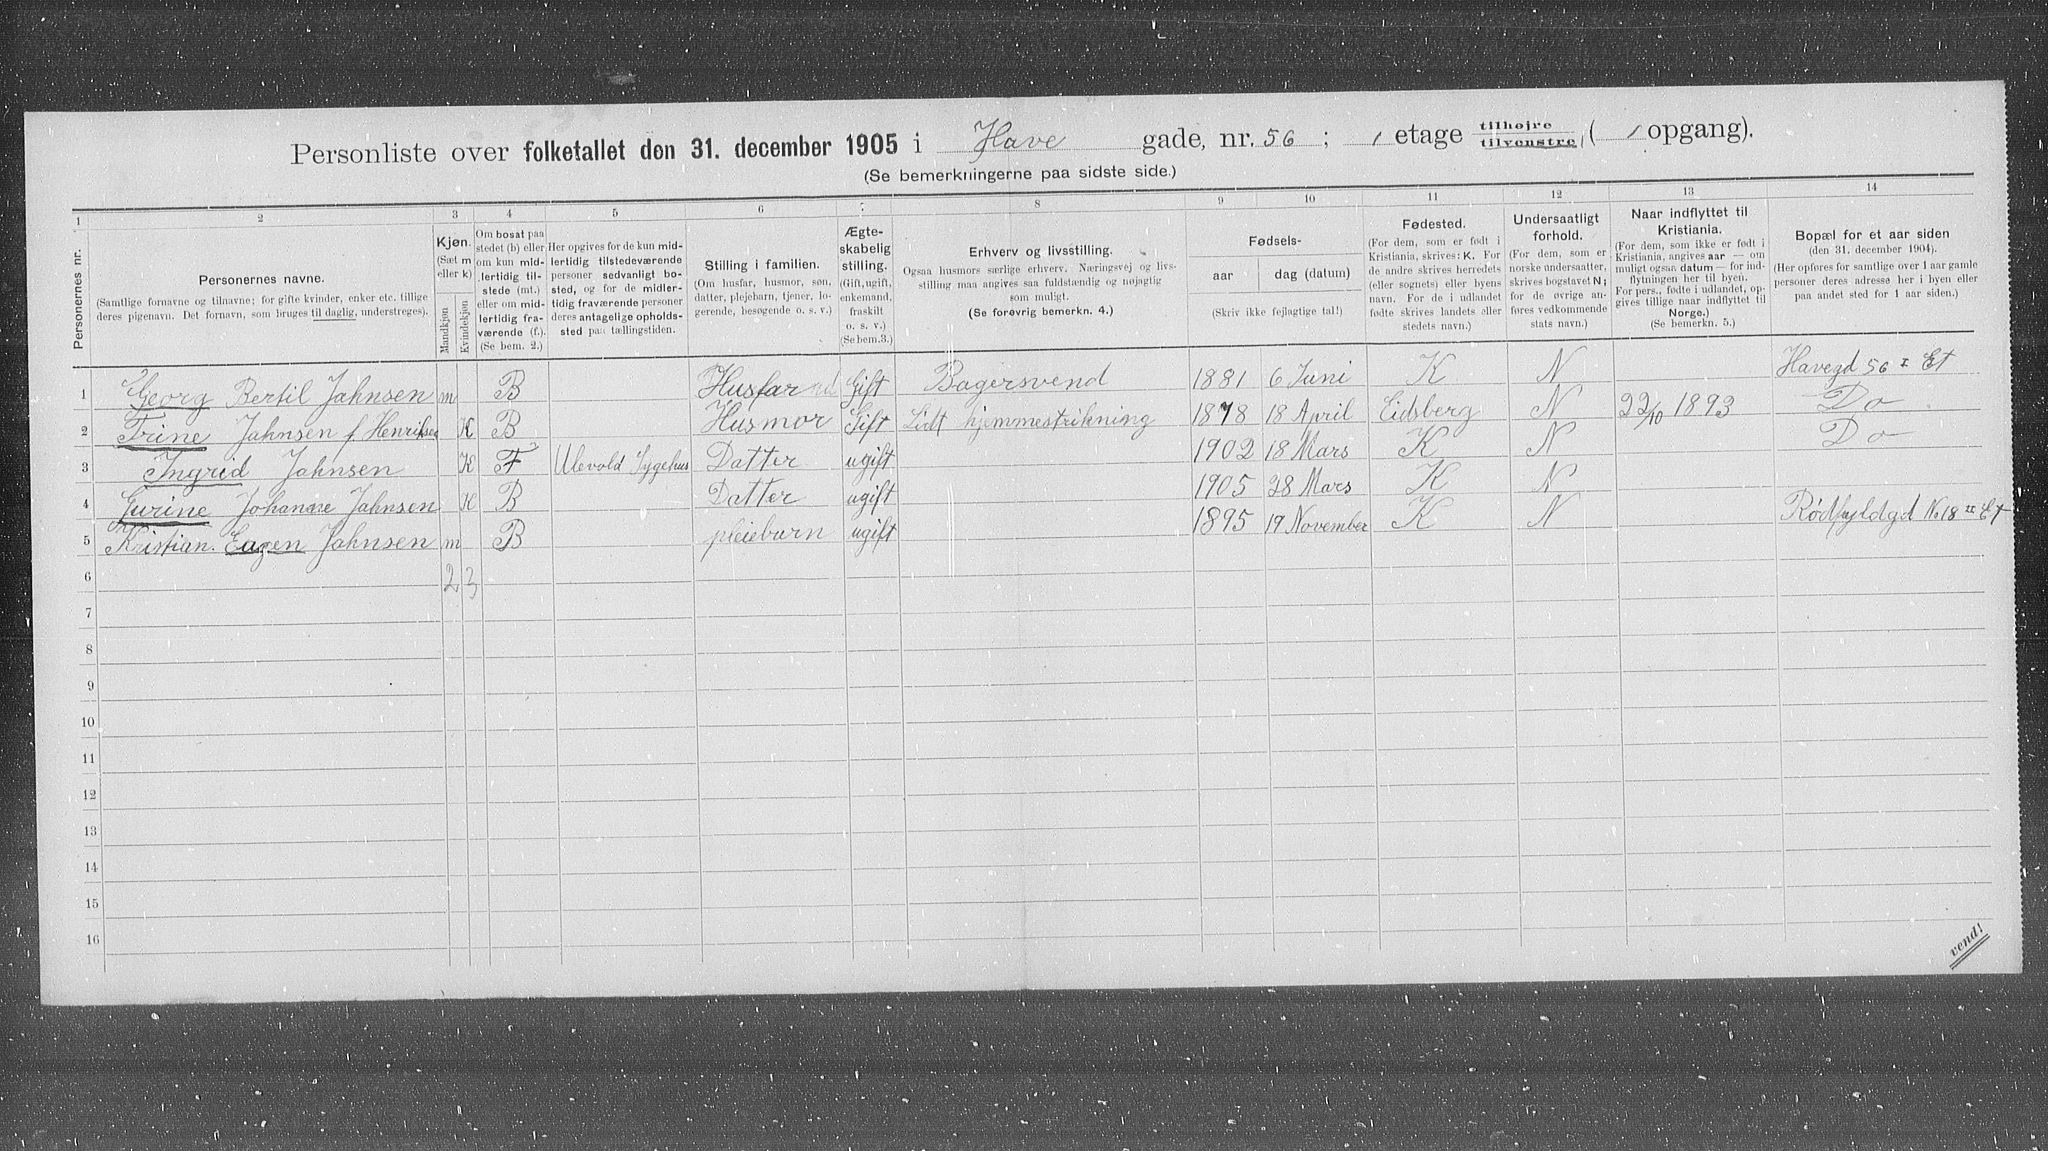 Personliste over folketallet den 31. december 1905 i Have gade, nr. 56 ; 1 etage tilhøjre tilvenstre ( 1 opgang).
(Se bemerkningerne paa sidste side.)
1 2 3 4 5 6 7 8 9 10 11 12 13 14
Personernes nr.
Personernes navne.
(Samtlige fornavne og tilnavne; for gifte kvinder, enker etc. tillige deres pigenavn. Det fornavn, som bruges til daglig, understreges).
Kjøn.
(Sæt m eller k)
Mandkjøn
Kvindekjøn
Om bosat paa stedet (b) eller om kun midlertidig tilstede (mt.) eller om midlertidig fraværende (f.).
(Se bem. 2.)
Her opgives for de kun midlertidig tilstedeværende personer sedvanligt bosted, og for de midlertidig fraværende personer deres antagelige opholdssted paa tællingstiden.
Stilling i familien.
(Om husfar, husmor, søn, datter, plejebarn, tjener, logerende, besøgende o. s. v.)
Ægteskabelig stilling.
(Gift, ugift, enkemand, fraskilt o. s. v.)
(Se bem.3.)
Erhverv og livsstilling.
Ogsaa husmors særlige erhverv. Næringsvej og livsstilling maa angives saa fuldstændig og nøjagtig som muligt.
(Se forøvrig bemerkn. 4.)
Fødsels-
aar
dag (datum)
(Skriv ikke fejlagtige tal!)
Fødested.
(For dem, som er født i Kristiania, skrives: K. For de andre skrives herredets (eller sognets) eller byens navn. For de i udlandet fødte skrives landets eller stedets navn.)
Undersaatligt forhold.
(For dem, som er norske undersaatter, skrives bogstavet N; for de øvrige anføres vedkommende stats navn.)
Naar indflyttet til Kristiania.
(For dem, som ikke er født i Kristiania, angives aar — om muligt ogsaa datum — for indflytningen her til byen. For pers., fødte i udlandet, opgives tillige naar indflyttet til Norge.)
(Se bemerkn. 5.)
Bopæl for et aar siden
(den 31. december 1904).
(Her opføres for samtlige over 1 aar gamle personer deres adresse her i byen eller paa andet sted for 1 aar siden.)
1 Georg Bertil Jahnsen m B Husfar Gift Bagersvend 1881 6 Juni K N Havegd 56 I Et
2 Trine Jahnsen f. Henriksen K B Husmor Gift Lidt hjemmestrikning 1878 18 April Eidsberg N 22/10 1893 Do
3 Ingrid Jahnsen K F Ulevold Sygehus Datter ugift 1902 18 Mars K N Do
4 Gurine Johanne Jahnsen K B Datter ugift 1905 28 Mars K N
5 Kristian. Eugen Jahnsen m B pleiebarn ugift 1895 19 November K N Rødfyldgd No 18 II Et
6 2 3
7
8
9
10
11
12
13
14
15
16
vend!